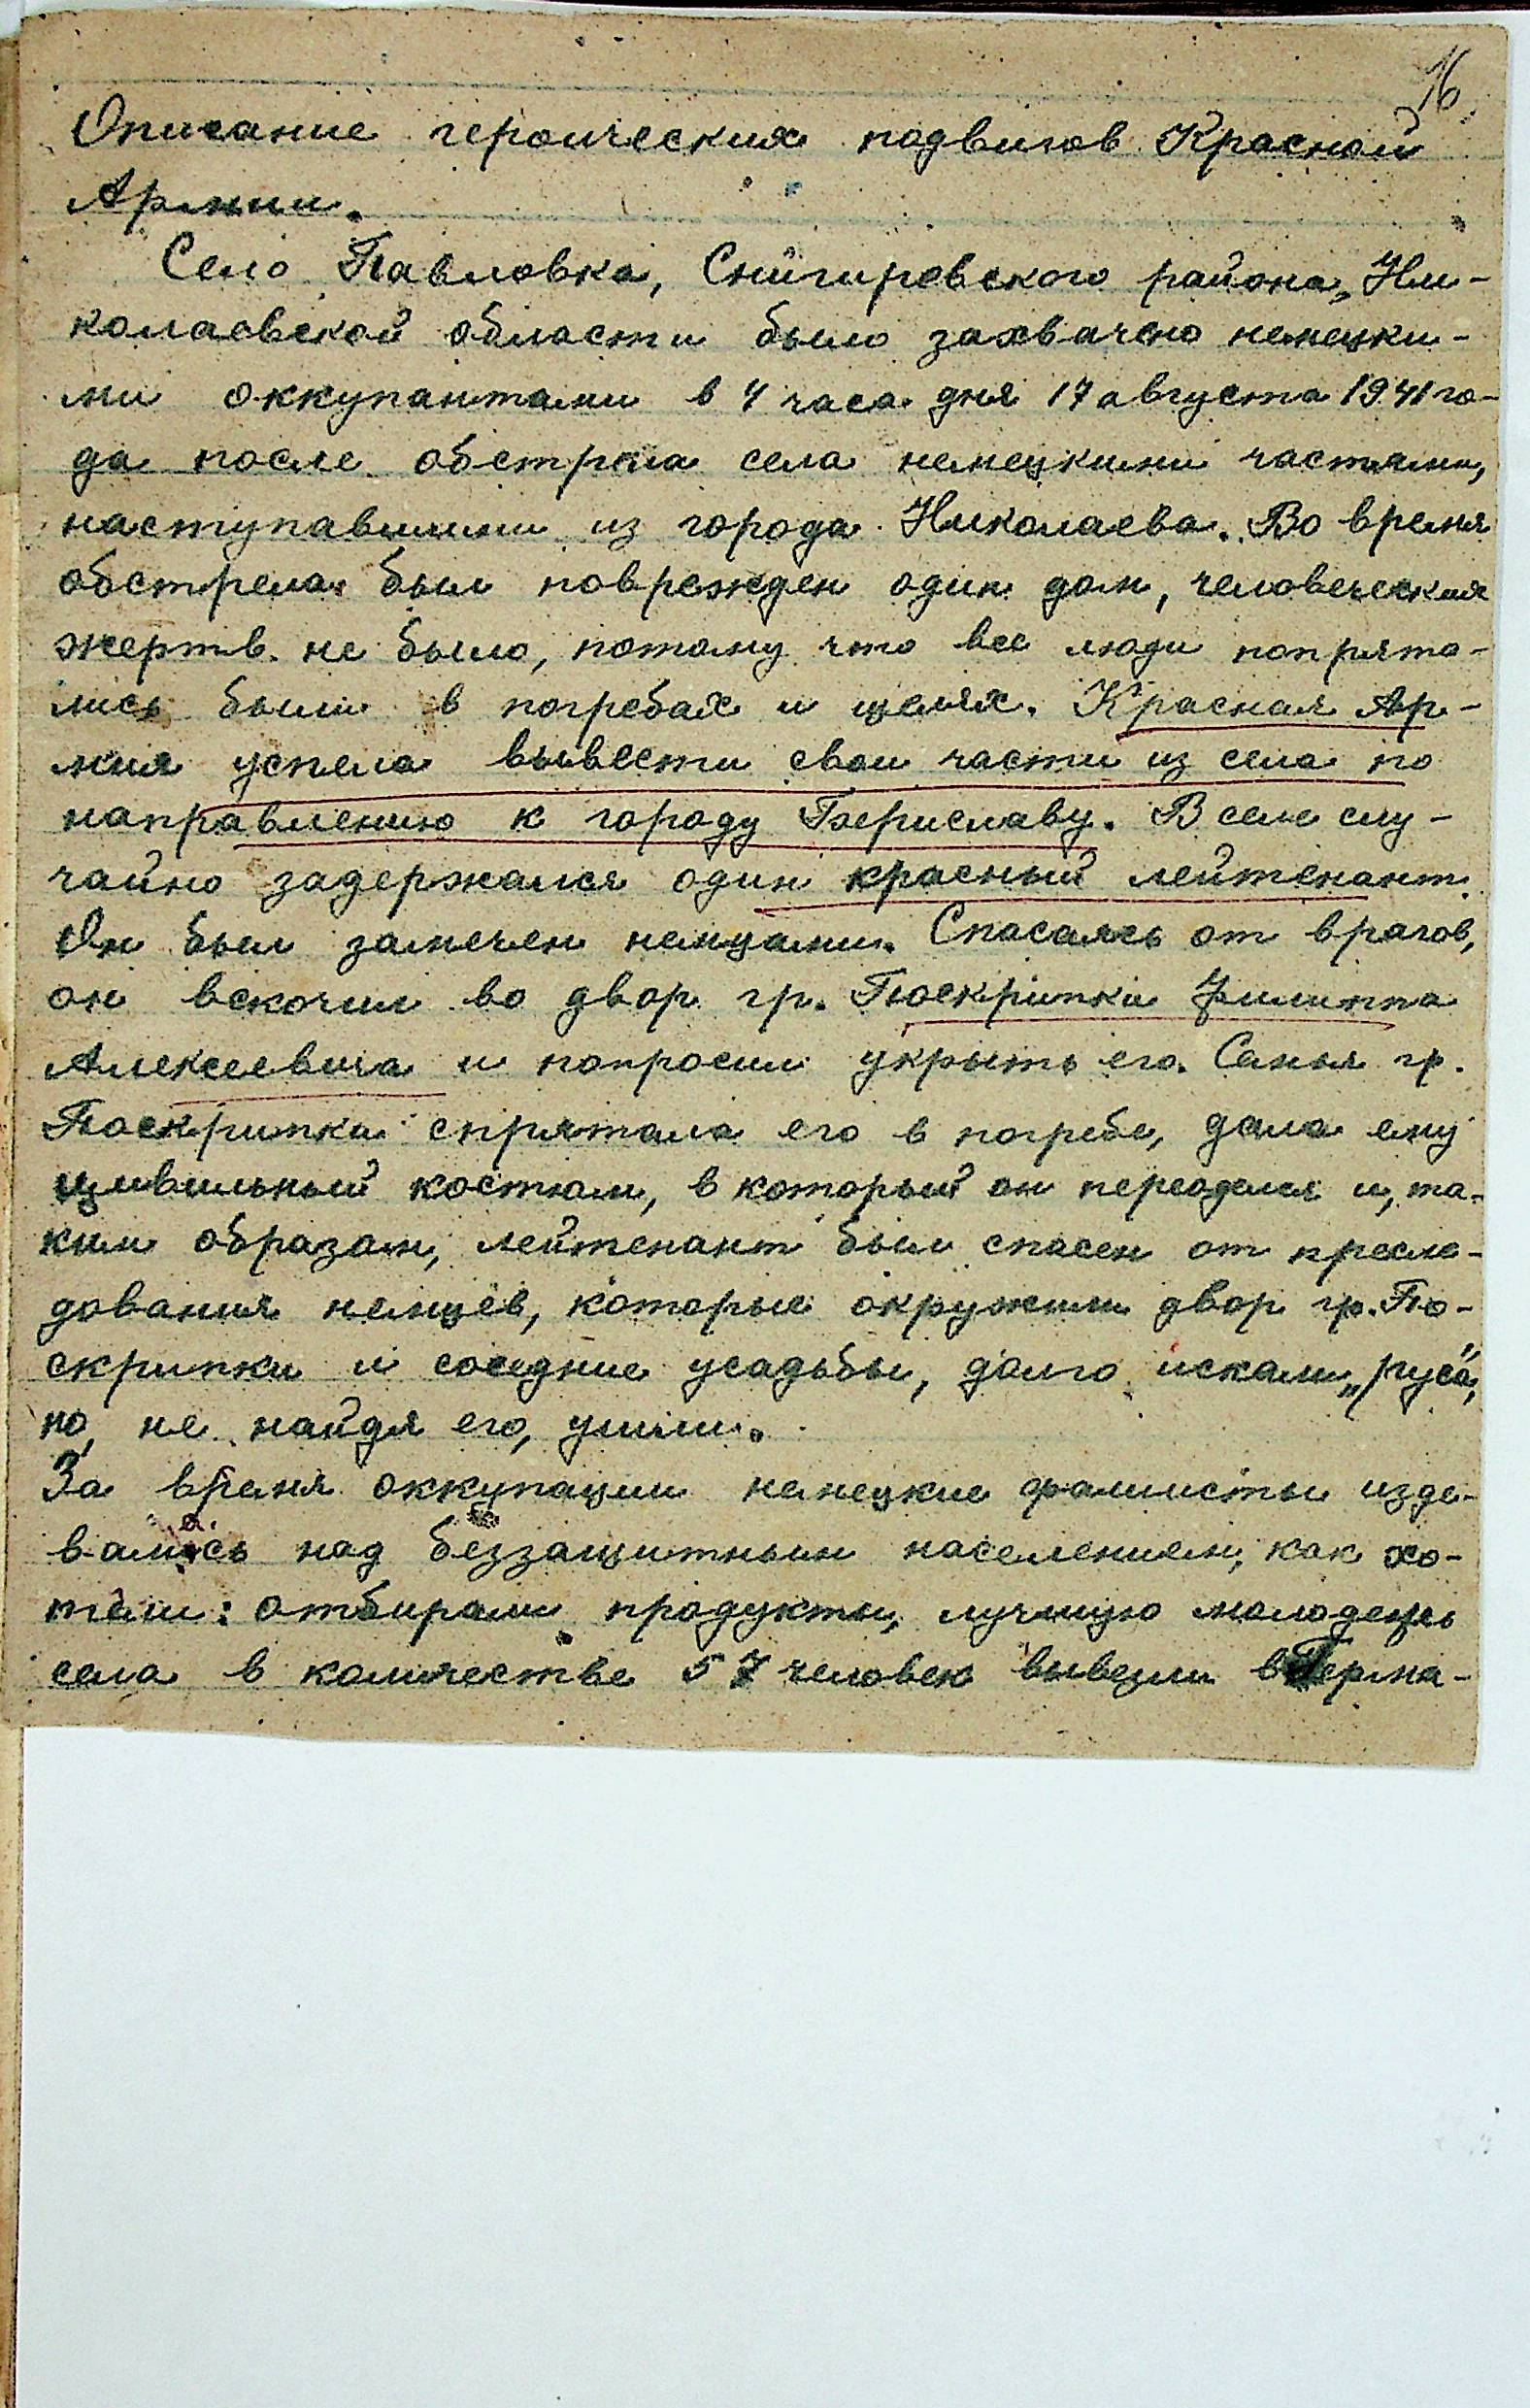 16
Описание героических подвигов Красной
Армии.
Село Павловка, Снигиревского района, Ни-
колаевской области было захвачено немецки-
ми оккупантами в 4 часа дня 17 августа 1941 го-
да после обстрела села немецкими частями,
наступавшими из города Николаева. Во время
обстрела был поврежден один дом, человеческих
жертв не было, потому что все люди попрята-
лись были в погребах и щелях. Красная Ар-
мия успела вывести свои части из села по
направлению к городу Бериславу. В селе слу-
чайно задержался один красный лейтенант.
Он был замечен немцами. Спасаясь от врагов,
он вскочил во двор гр. Поскрипки Филиппа
Алексеевича и попросил укрыть его. Семья гр.
Поскрипки спрятала его в погребе, дала ему
цивильный костюм, в который он переоделся и, та-
ким образом, лейтенант был спасен от пресле-
дования немцев, которые окружили двор гр. По-
скрипки и соседние усадьбы, долго искали „руса“,
но, не найдя его, ушли.
За время оккупации немецкие фашисты изде-
вались над беззащитным населением, как хо-
тели: отбирали продукты, лучшую молодежь
села в количестве 57 человек вывезли в Герма-